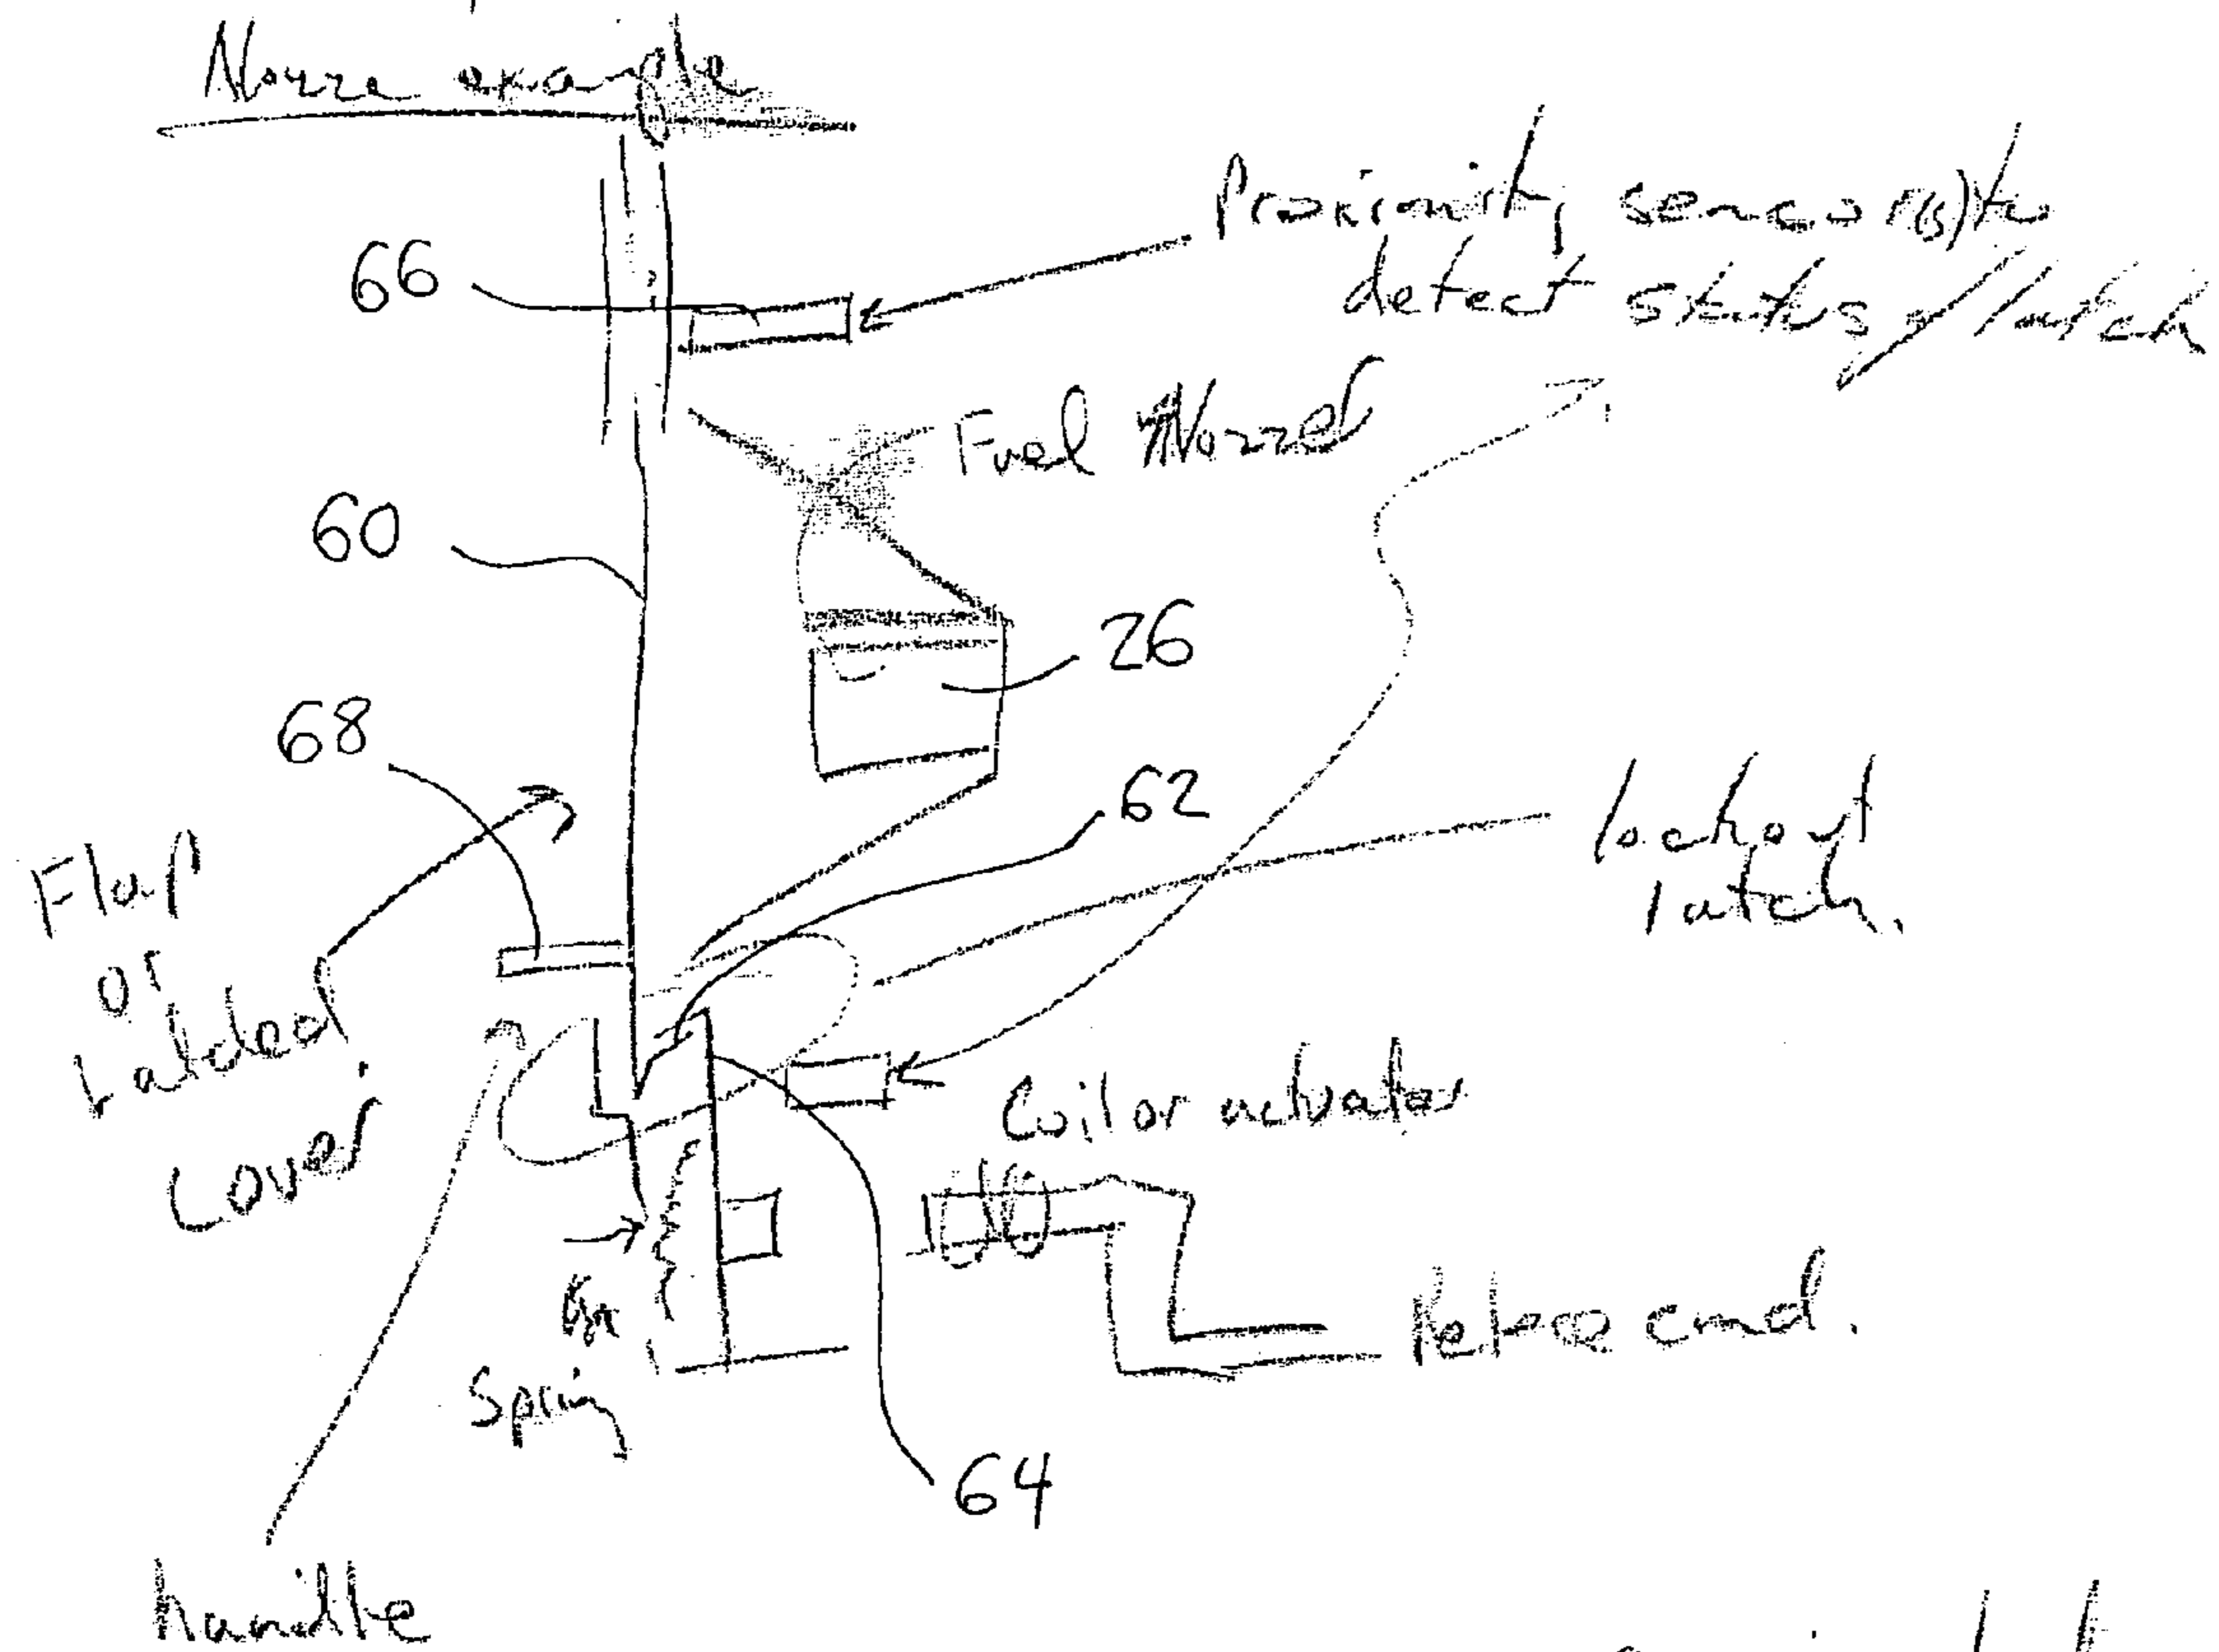 Nozze example
Proximity sensor(s) to
detect status / latch
66
Fuel Nozzel
60
26
68
62
lockout
latch.
Flap
or
Latched
Cover
Coil or actuator
Spring
cmd.
64
handle